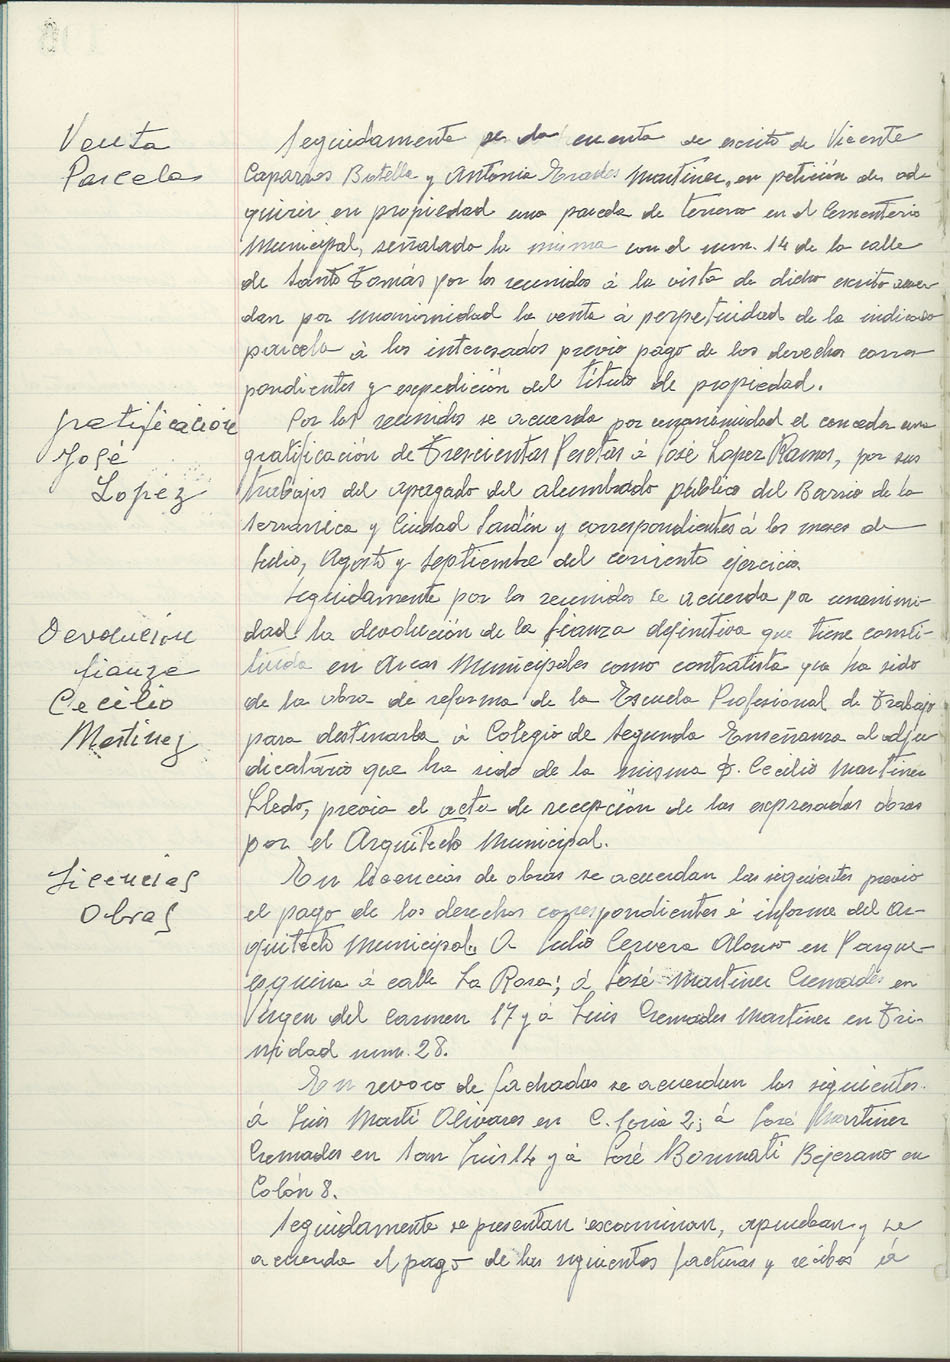 Venta
Parcela
Seguidamente se da cuenta de escrito de Vicente
Caparros Botella y Antonia Martinez, en petición de ad-
quirir en propiedad una parcela de terreno en el Cementerio
Municipal, señalado la misma con el num. 14 de la calle
de Santo Tomás por los reunidos á la vista de dicho escrito acuer-
dan por unanimidad la venta á perpetuidad de la indicada
parcela á los interesados previo pago de los derechos corres-
pondientes y expedición del título de propiedad.
gratificación
José
Lopez
Por los reunidos se acuerda por unanimidad el conceder una
gratificación de Trescientas Pesetas á José Lopez Ramos, por sus
trabajos del apagado del alumbrado público del Barrio de la
Serranica y Ciudad Jardín y correspondientes á los meses de
Julio, Agosto y Septiembre del corriente ejercicio.
Devolución
fianza
Cecilio
Martinez
Seguidamente por los reunidos se acuerda por unanimi-
dad la devolución de la fianza definitiva que tiene consti-
tuida en Arcas Municipales como contratista que ha sido
de la obra de reforma de la Escuela Profesional de Trabajo
para destinarla á Colegio de Segunda Enseñanza al adju-
dicatario que ha sido de la misma D. Cecilio Martinez
Lledo, previa el acta de recepción de las expresadas obras
por el Arquitecto Municipal.
Licencias
Obras
En licencias de obras se acuerdan las siguientes previo
el pago de los derechos correspondientes é informe del Ar-
quitecto Municipal. A Julio Cervera Alonso en Parque
esquina á calle La Rosa; á José Martinez Cremades en
Virgen del Carmen 17 y á Luis Cremades Martinez en Tri-
nidad num. 28.
En revoco de fachadas se acuerdan los siguientes.
á Luis Martí Olivares en C. Soria 2; á José Martinez
Cremades en San Luis 14 y á José Bonmatí Bejerano en
Colón 8.
Seguidamente se presentan examinan, aprueban y se
acuerda el pago de las siguientes facturas y recibos á